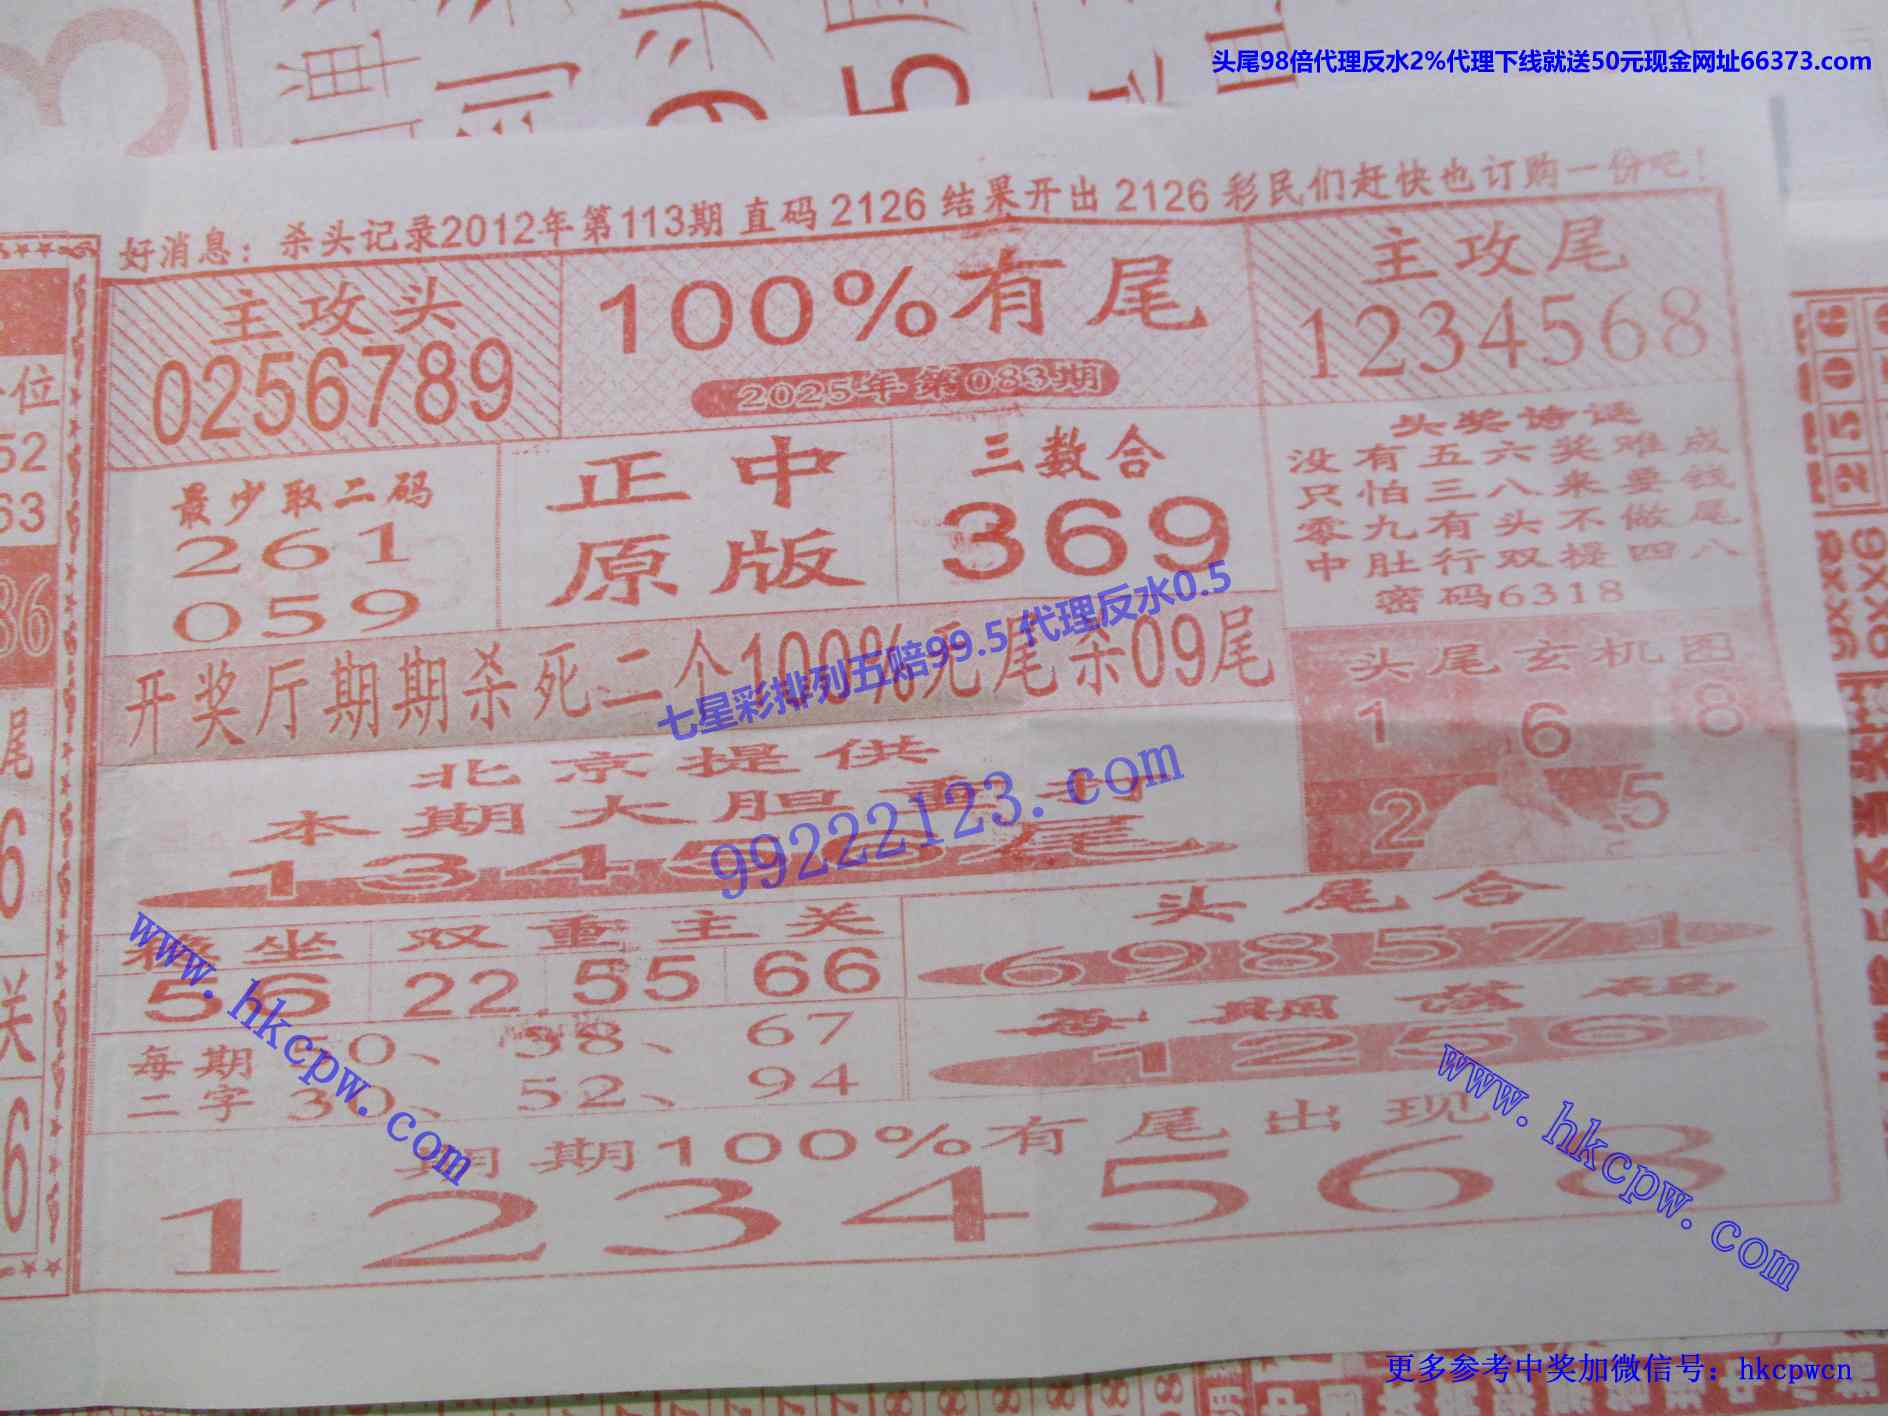 头尾98倍代理反水2%代理下线就送50元现金网址66373.com
好消息：杀头记录2012年第113期 直码 2126 结果开出 2126 彩民们赶快也订购一份吧！
主攻头
0256789
100%有尾
2025年第083期
主攻尾
1234568
最少取二码
261
059
正中
原版
三数合
369
头奖诗谜
没有五六奖难成
只怕三八来要钱
零九有头不做尾
中肚行双提四八
密码6318
开奖厅期期杀死二个100%无尾杀09尾
七星彩排列五赔99.5 代理反水0.5
99222123.com
头尾玄机图
1 6 8
2 5
北京提供
本期大胆重打
134568尾
稳坐 双重主关
56 22 55 66
头尾合
698571
每期
二字
50、38、67
30、52、94
每期落码
1256
www.hkcpw.com
www.hkcpw.com
期期100%有尾出现
1234568
更多参考中奖加微信号：hkcpwcn